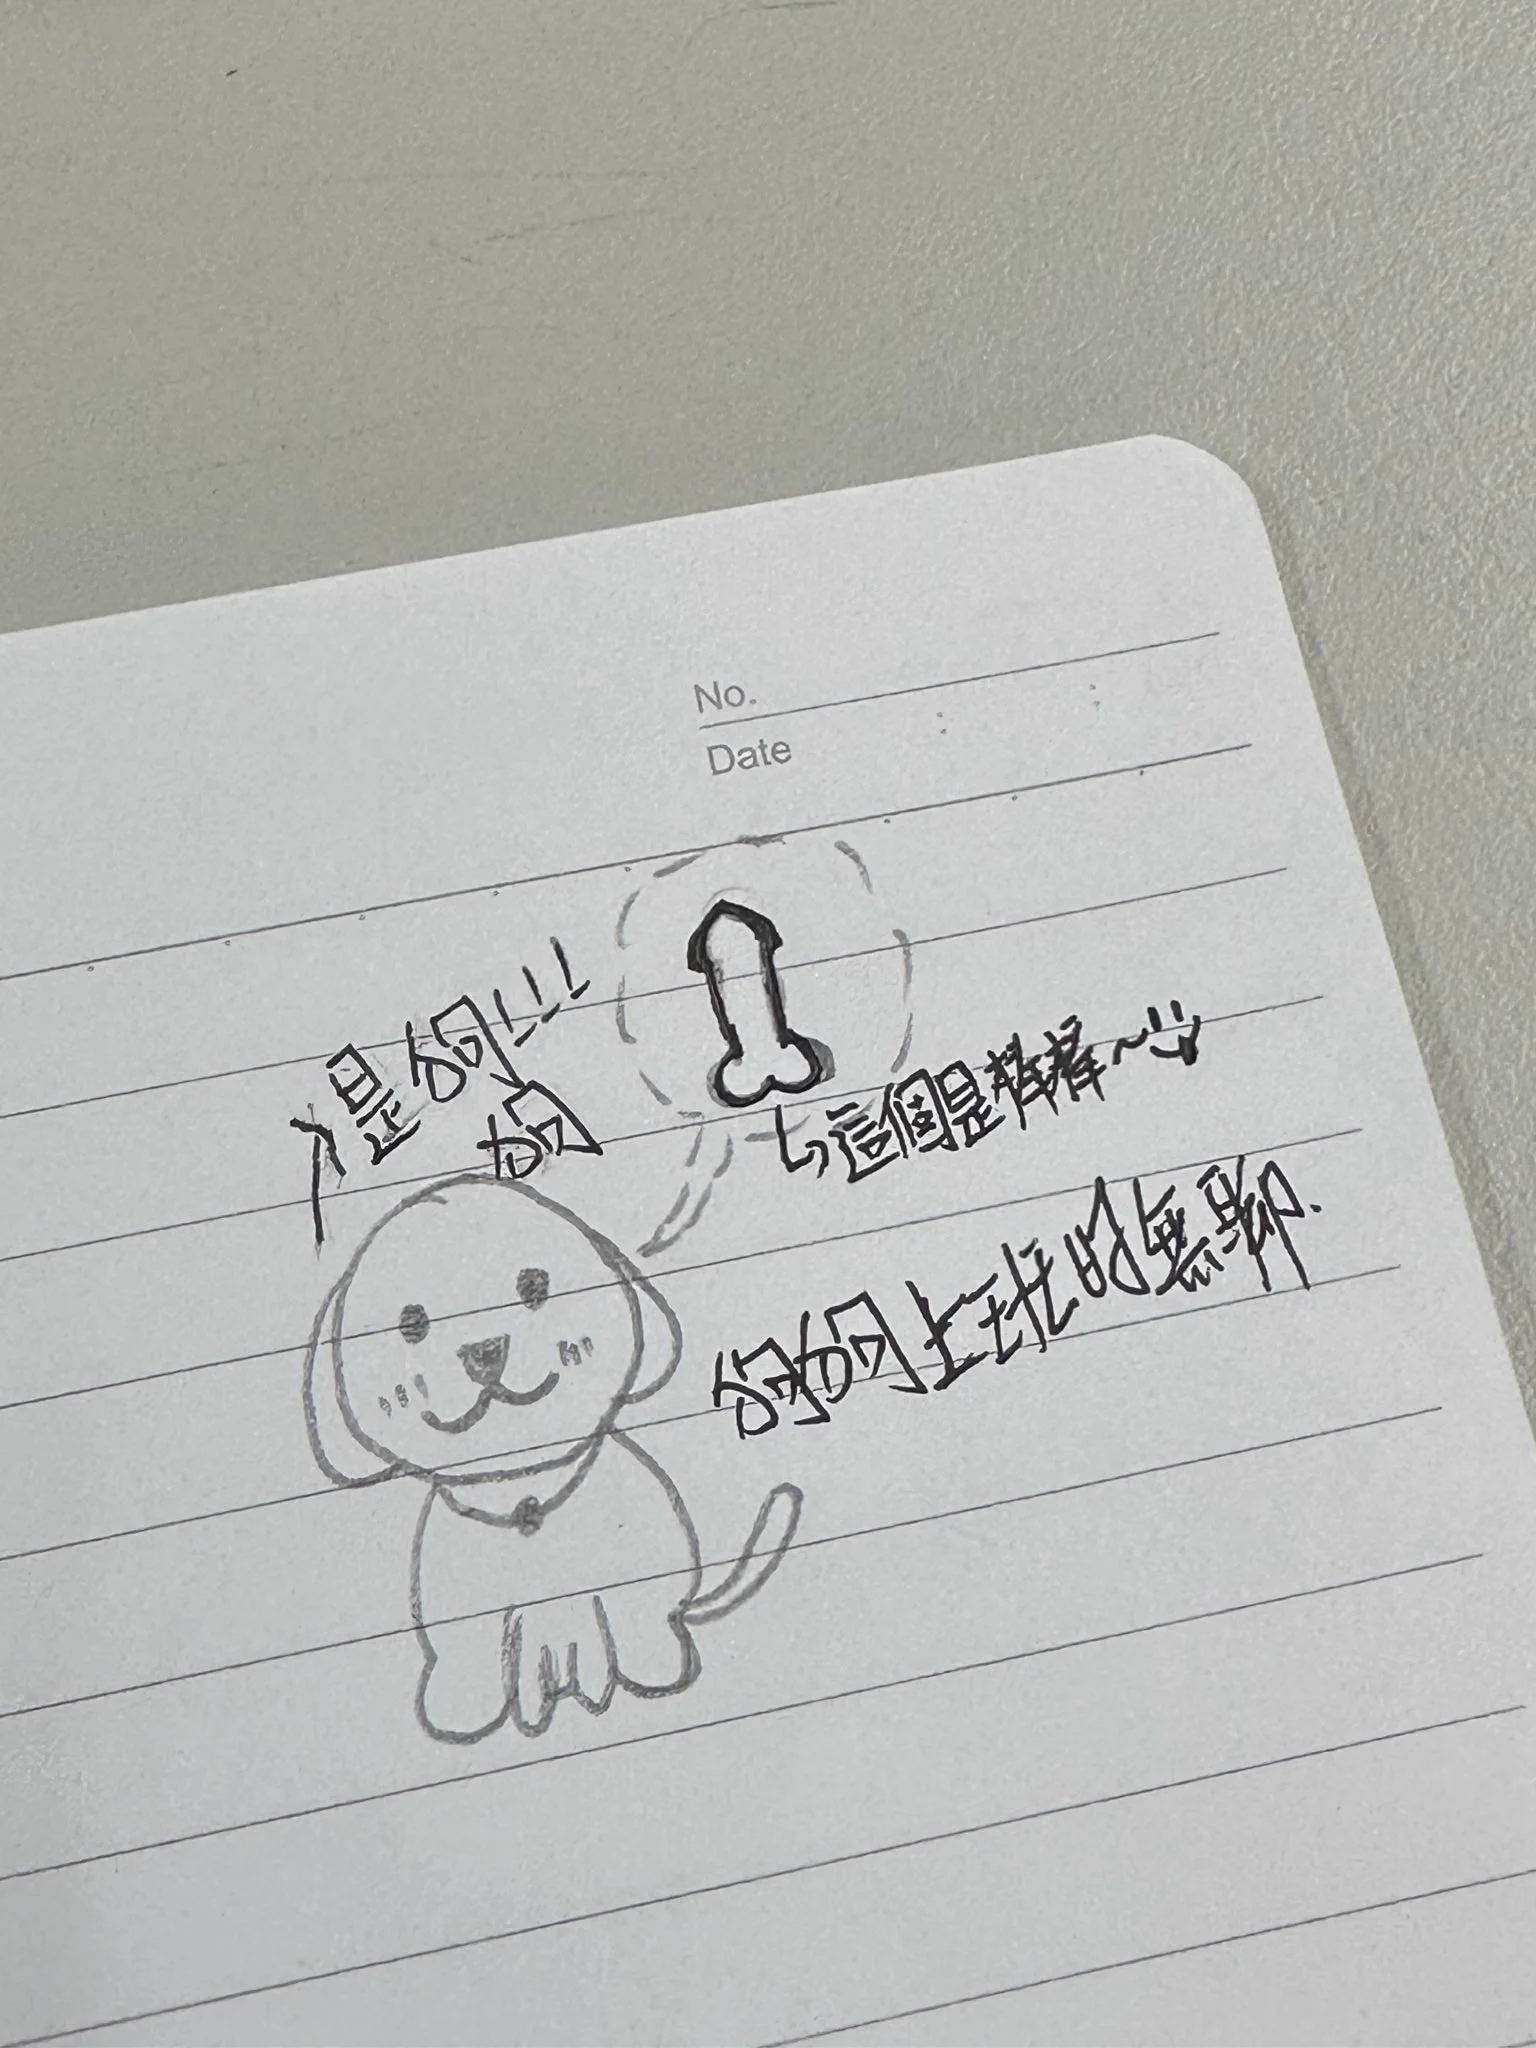 No.
Date
是狗狗!!!
這個是棒棒~
狗狗上班的無聊.